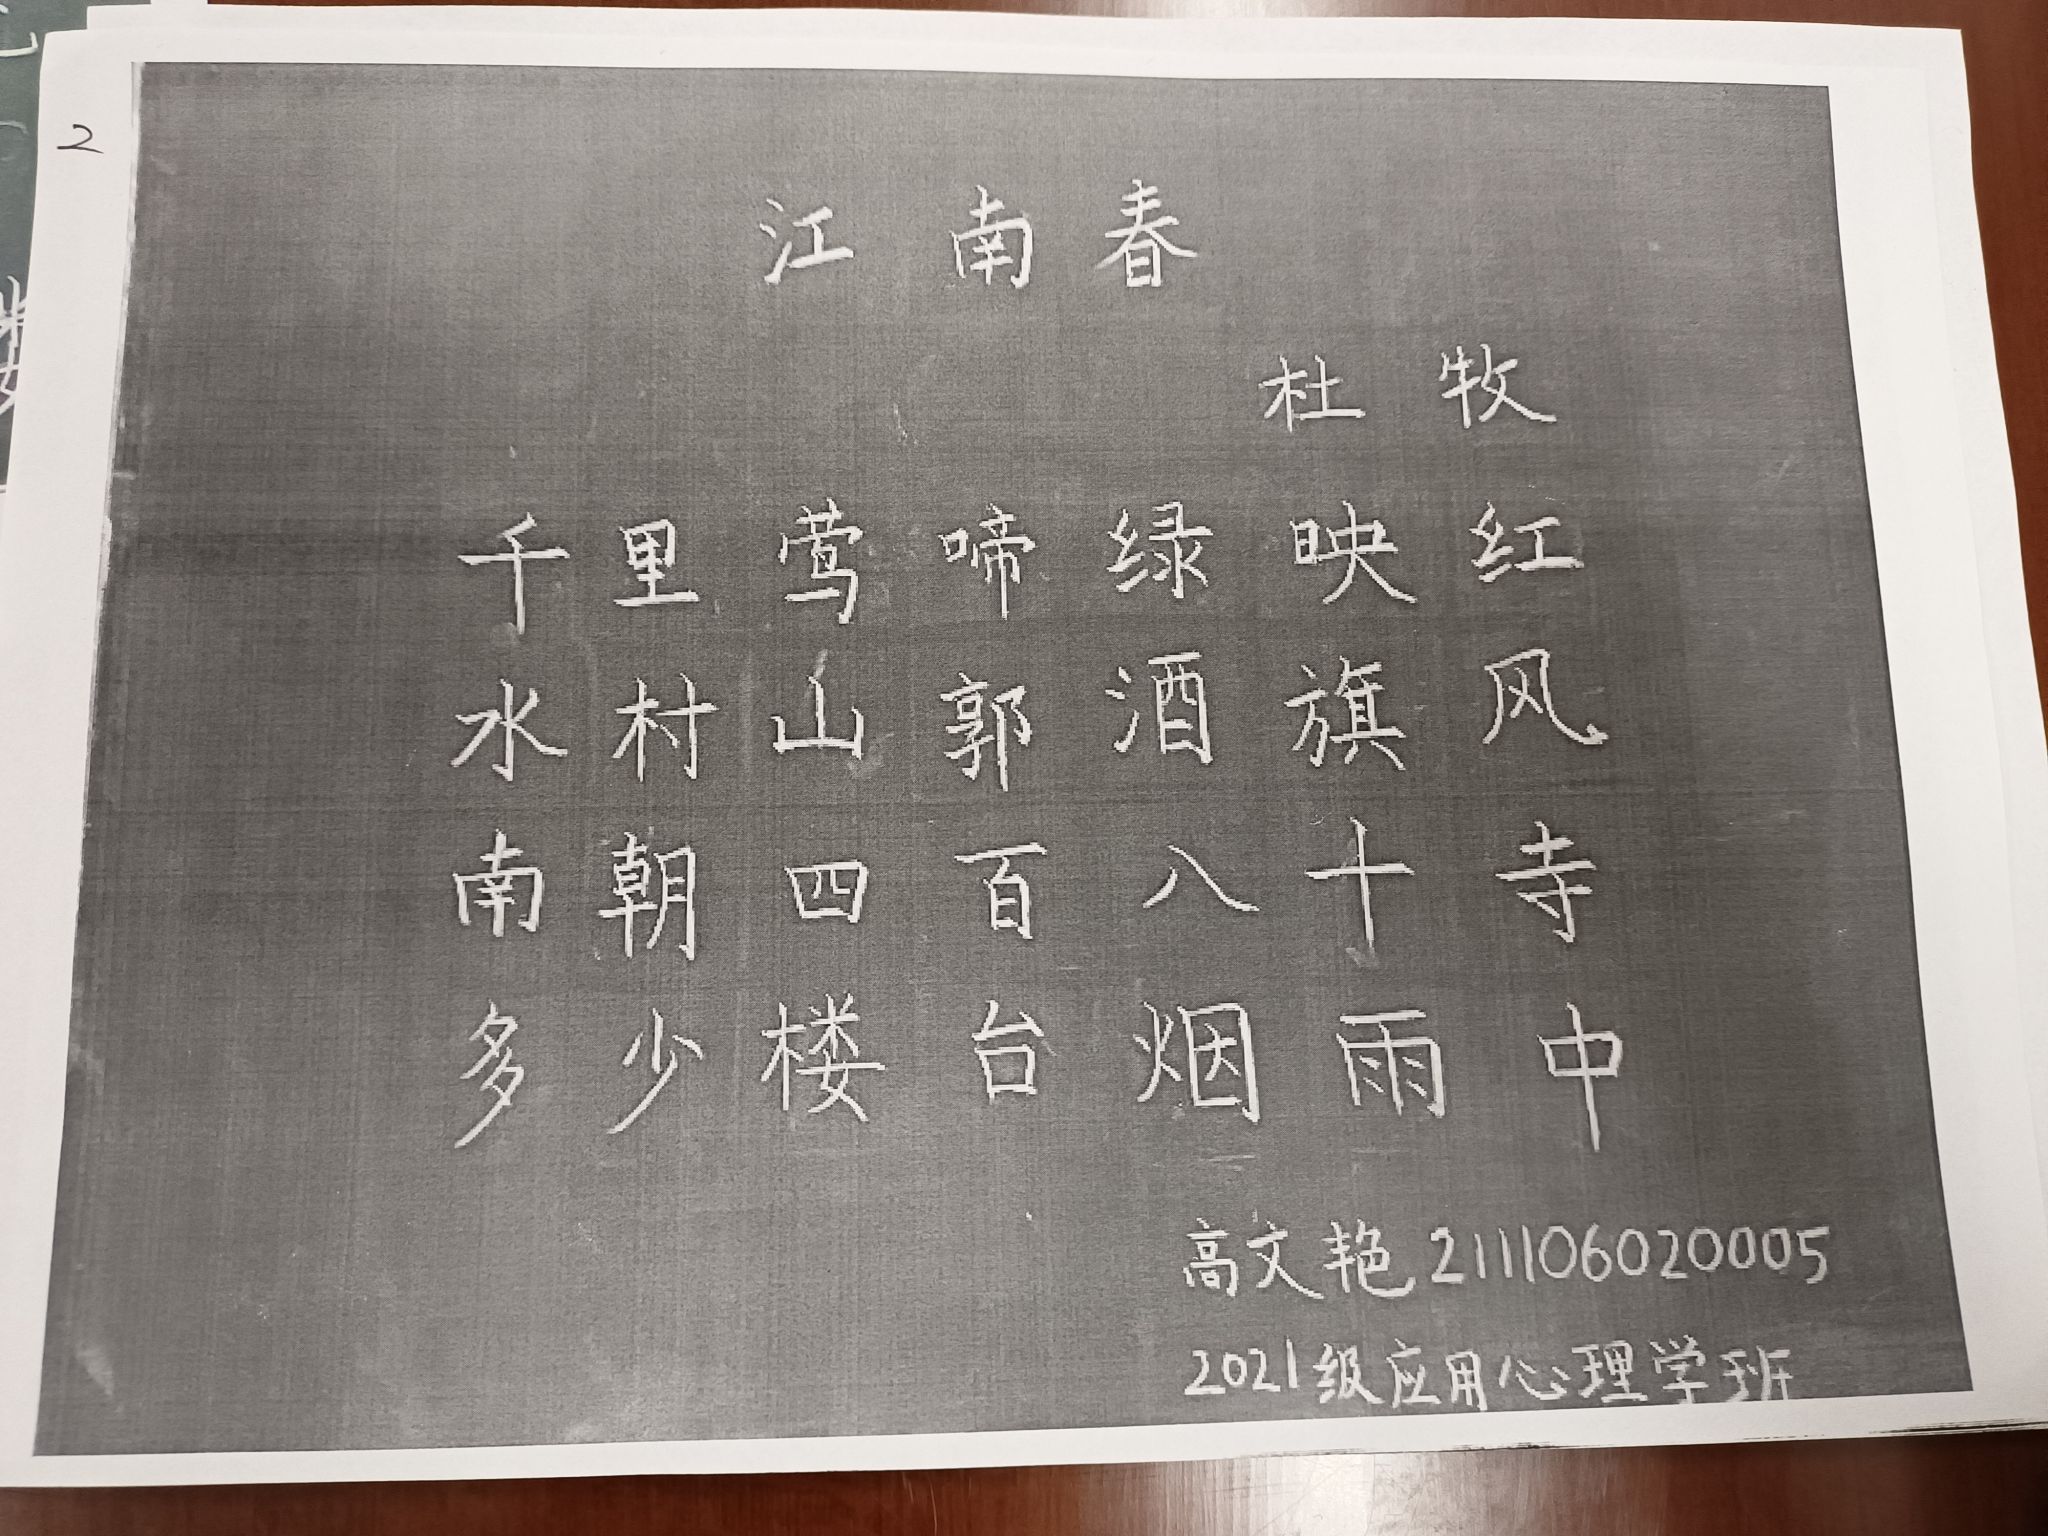 2
江南春
杜牧
千里莺啼绿映红
水村山郭酒旗风
南朝四百八十寺
多少楼台烟雨中
高文艳 211106020005
2021级应用心理学班